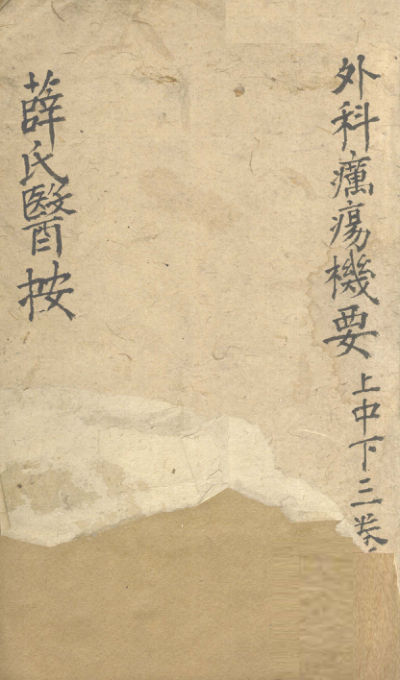 外科癘瘍機要 上中下三卷
薛氏醫按